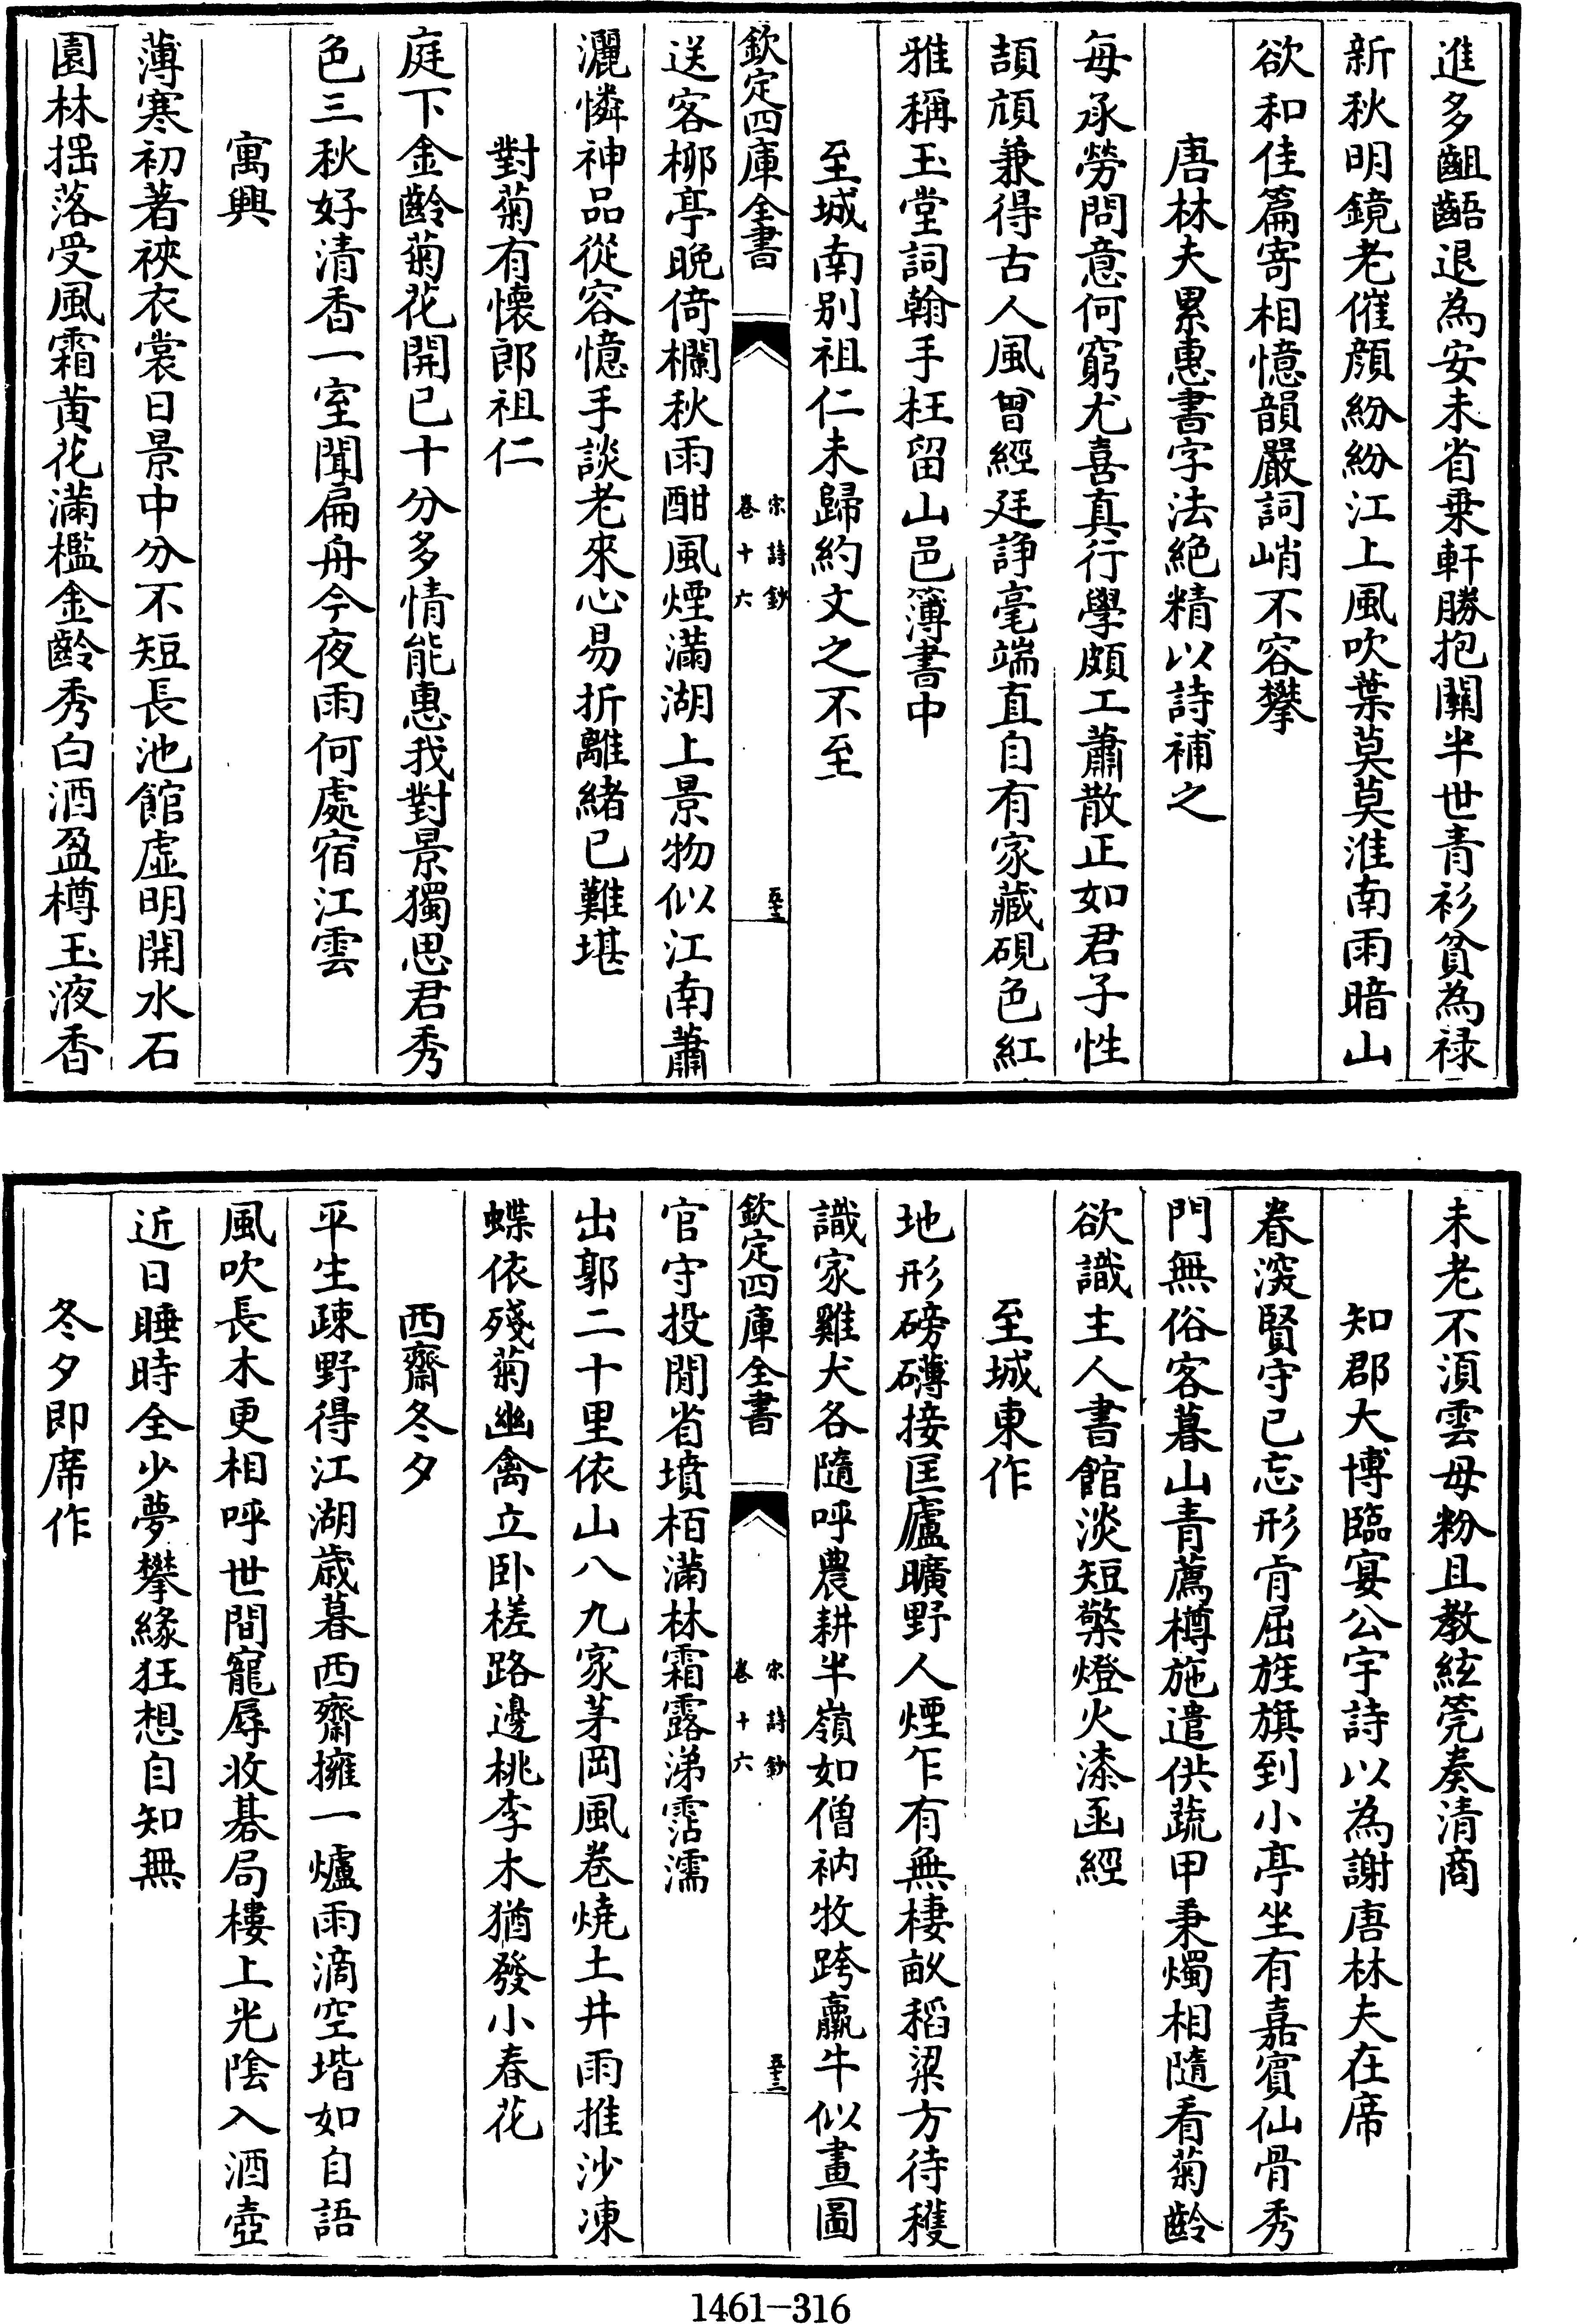 進多齟齬退為安未省乗軒勝抱關半世青衫貧為禄
新秋明鏡老催顔紛紛江上風吹葉莫莫淮南雨暗山
欲和佳篇寄相憶韻嚴詞峭不容攀
唐林夫累惠書字法絶精以詩補之
每承勞問意何窮尤喜真行學頗工蕭散正如君子性
頡頏兼得古人風曾經廷諍毫端直自有家藏硯色紅
雅稱玉堂詞翰手枉留山邑簿書中
至城南别祖仁未歸約文之不至
欽定四庫全書
宋詩鈔
卷十六
五十三
送客柳亭晚倚欄秋雨酣風煙滿湖上景物似江南蕭
灑憐神品從容憶手談老來心易折離緒已難堪
對菊有懷郎祖仁
庭下金齡菊花開已十分多情能惠我對景獨思君秀
色三秋好清香一室聞扁舟今夜雨何處宿江雲
寓興
薄寒初著裌衣裳日景中分不短長池館虛明開水石
園林揺落受風霜黄花滿檻金齡秀白酒盈樽玉液香
未老不須雲母粉且教絃筦奏清商
知郡大博臨宴公宇詩以為謝唐林夫在席
眷深賢守已忘形肯屈旌旗到小亭坐有嘉賓仙骨秀
門無俗客暮山青薦樽施遣供蔬甲秉燭相隨看菊齡
欲識主人書館淡短檠燈火漆函經
至城東作
地形磅礴接匡廬曠野人煙乍有無棲畝稻粱方待穫
識家雞犬各隨呼農耕半嶺如僧衲牧跨羸牛似畫圖
欽定四庫全書
宋詩鈔
卷十六
五十三
官守投閒省墳栢滿林霜露涕霑濡
出郭二十里依山八九家茅岡風卷燒土井雨推沙凍
蝶依殘菊幽禽立卧槎路邊桃李木猶發小春花
西齋冬夕
平生疎野得江湖歲暮西齋擁一爐雨滴空堦如自語
風吹長木更相呼世間寵辱收碁局樓上光陰入酒壺
近日睡時全少夢攀緣狂想自知無
冬夕即席作
1461-316